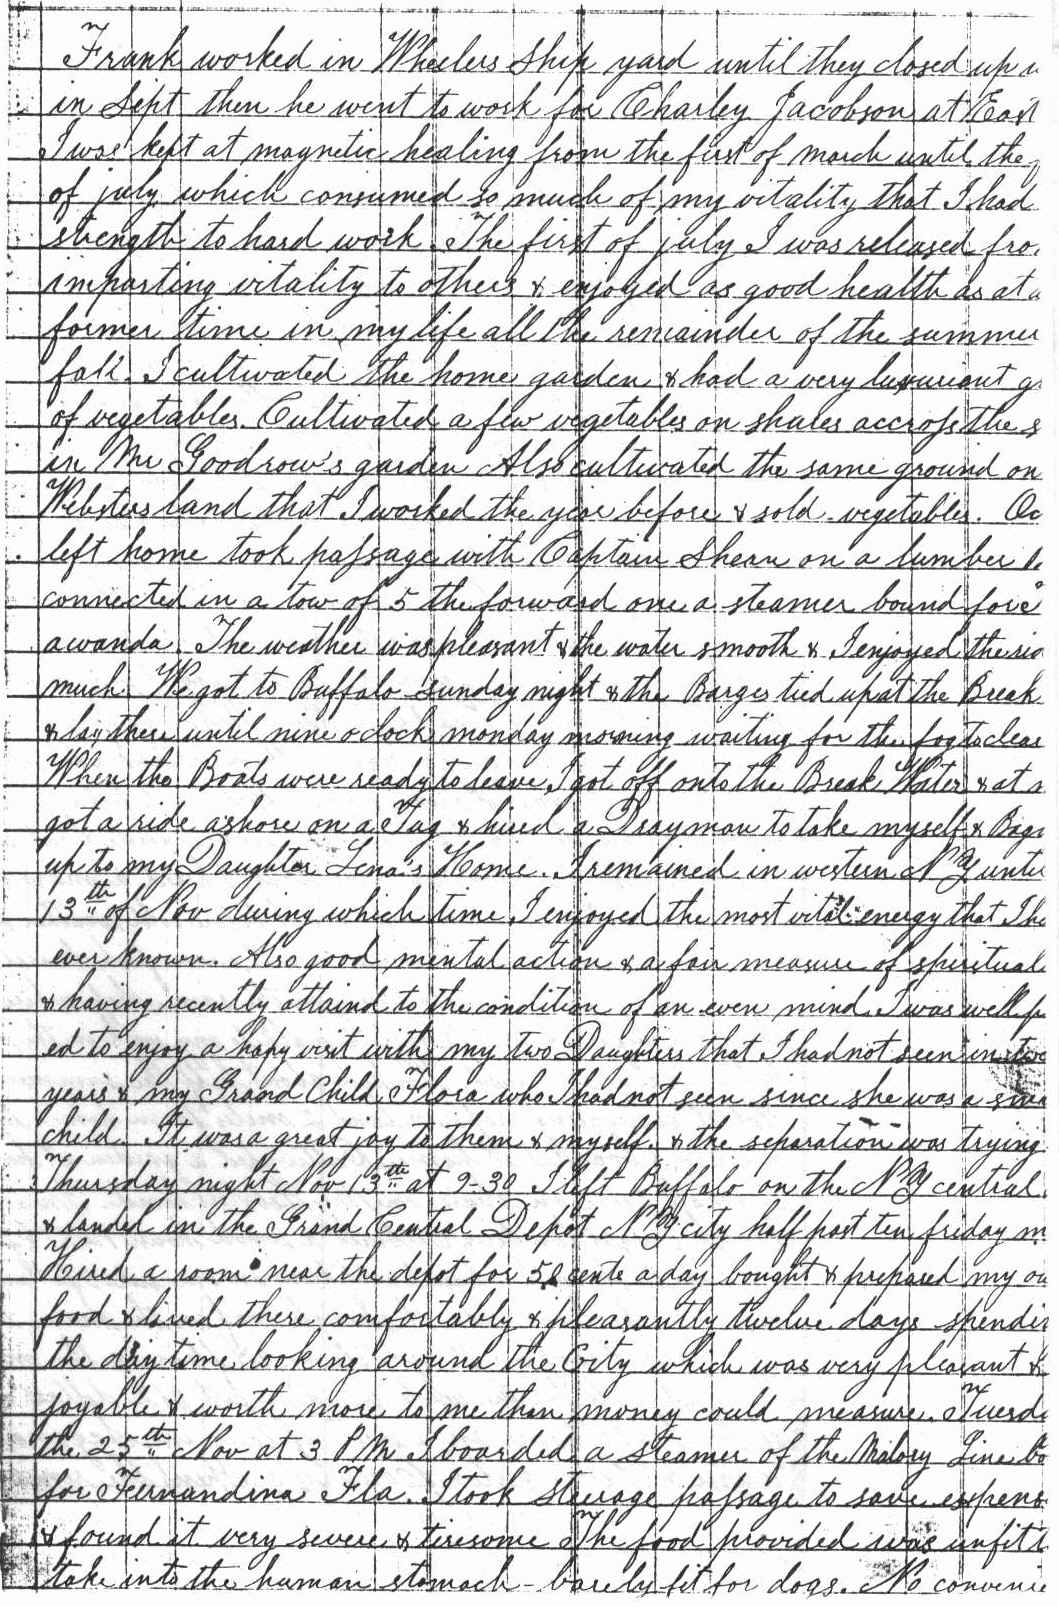 Frank worked in Wheelers Ship yard until they closed up
in Sept then he went to work for Charley Jacobson at East
I was kept at magnetic healing from the first of march until the
of july which consumed so much of my vitality that I had
strength to hard work. The first of july I was released fro
imparting vitality to others & enjoyed as good health as at a
former time in my life all the remainder of the summer
fall. I cultivated the home garden & had a very luxuriant g
of vegetables. Cultivated a few vegetables on shares accross the s
in Mr Goodrow's garden Also cultivated the same ground on
Websters land that I worked the year before & sold vegetables. Oc
left home took passage with Captain Shean on a lumber
connected in a tow of 5 the forward one a steamer bound for
awanda. The weather was pleasant & the water smooth & I enjoyed the rid
much. We got to Buffalo Sunday night & the Barges tied up at the Break
& lay there until nine oclock monday morning waiting for the fog to clear
When the Boats were ready to leave I got off onto the Break Water & at
got a ride ashore on a Tug & hired a Drayman to take myself & Bag
up to my Daughter Lena's Home. I remained in western N Y unti
13th of Nov during which time I enjoyed the most vital energy that I ha
ever known. Also good mental action & a fair measure of spiritual
& having recently attaind to the condition of an even mind I was well p
ed to enjoy a hapy visit with my two Daughters that I had not seen in
years & my Grand Child Flora who I had not seen since she was a
child. It was a great joy to them & myself. & the separation was trying
Thursday night Nov 13th at 9-30 I left Buffalo on the N Y central
& landed in the Grand Central Depot N Y city half past ten friday m
Hired a room near the depot for 50 cents a day bought & prepared my
food & lived there comfortably & pleasantly twelve days spendin
the day time looking around the City which was very pleasant &
joyable & worth more to me than money could measure. Tuesd
the 25th Nov at 3 P M I boarded a steamer of the Malory Line bo
for Fernandina Fla. I took steerage passage to save expens
& found it very severe & tiresome The food provided was unfit t
take into the human stomach - barely fit for dogs. No convenie